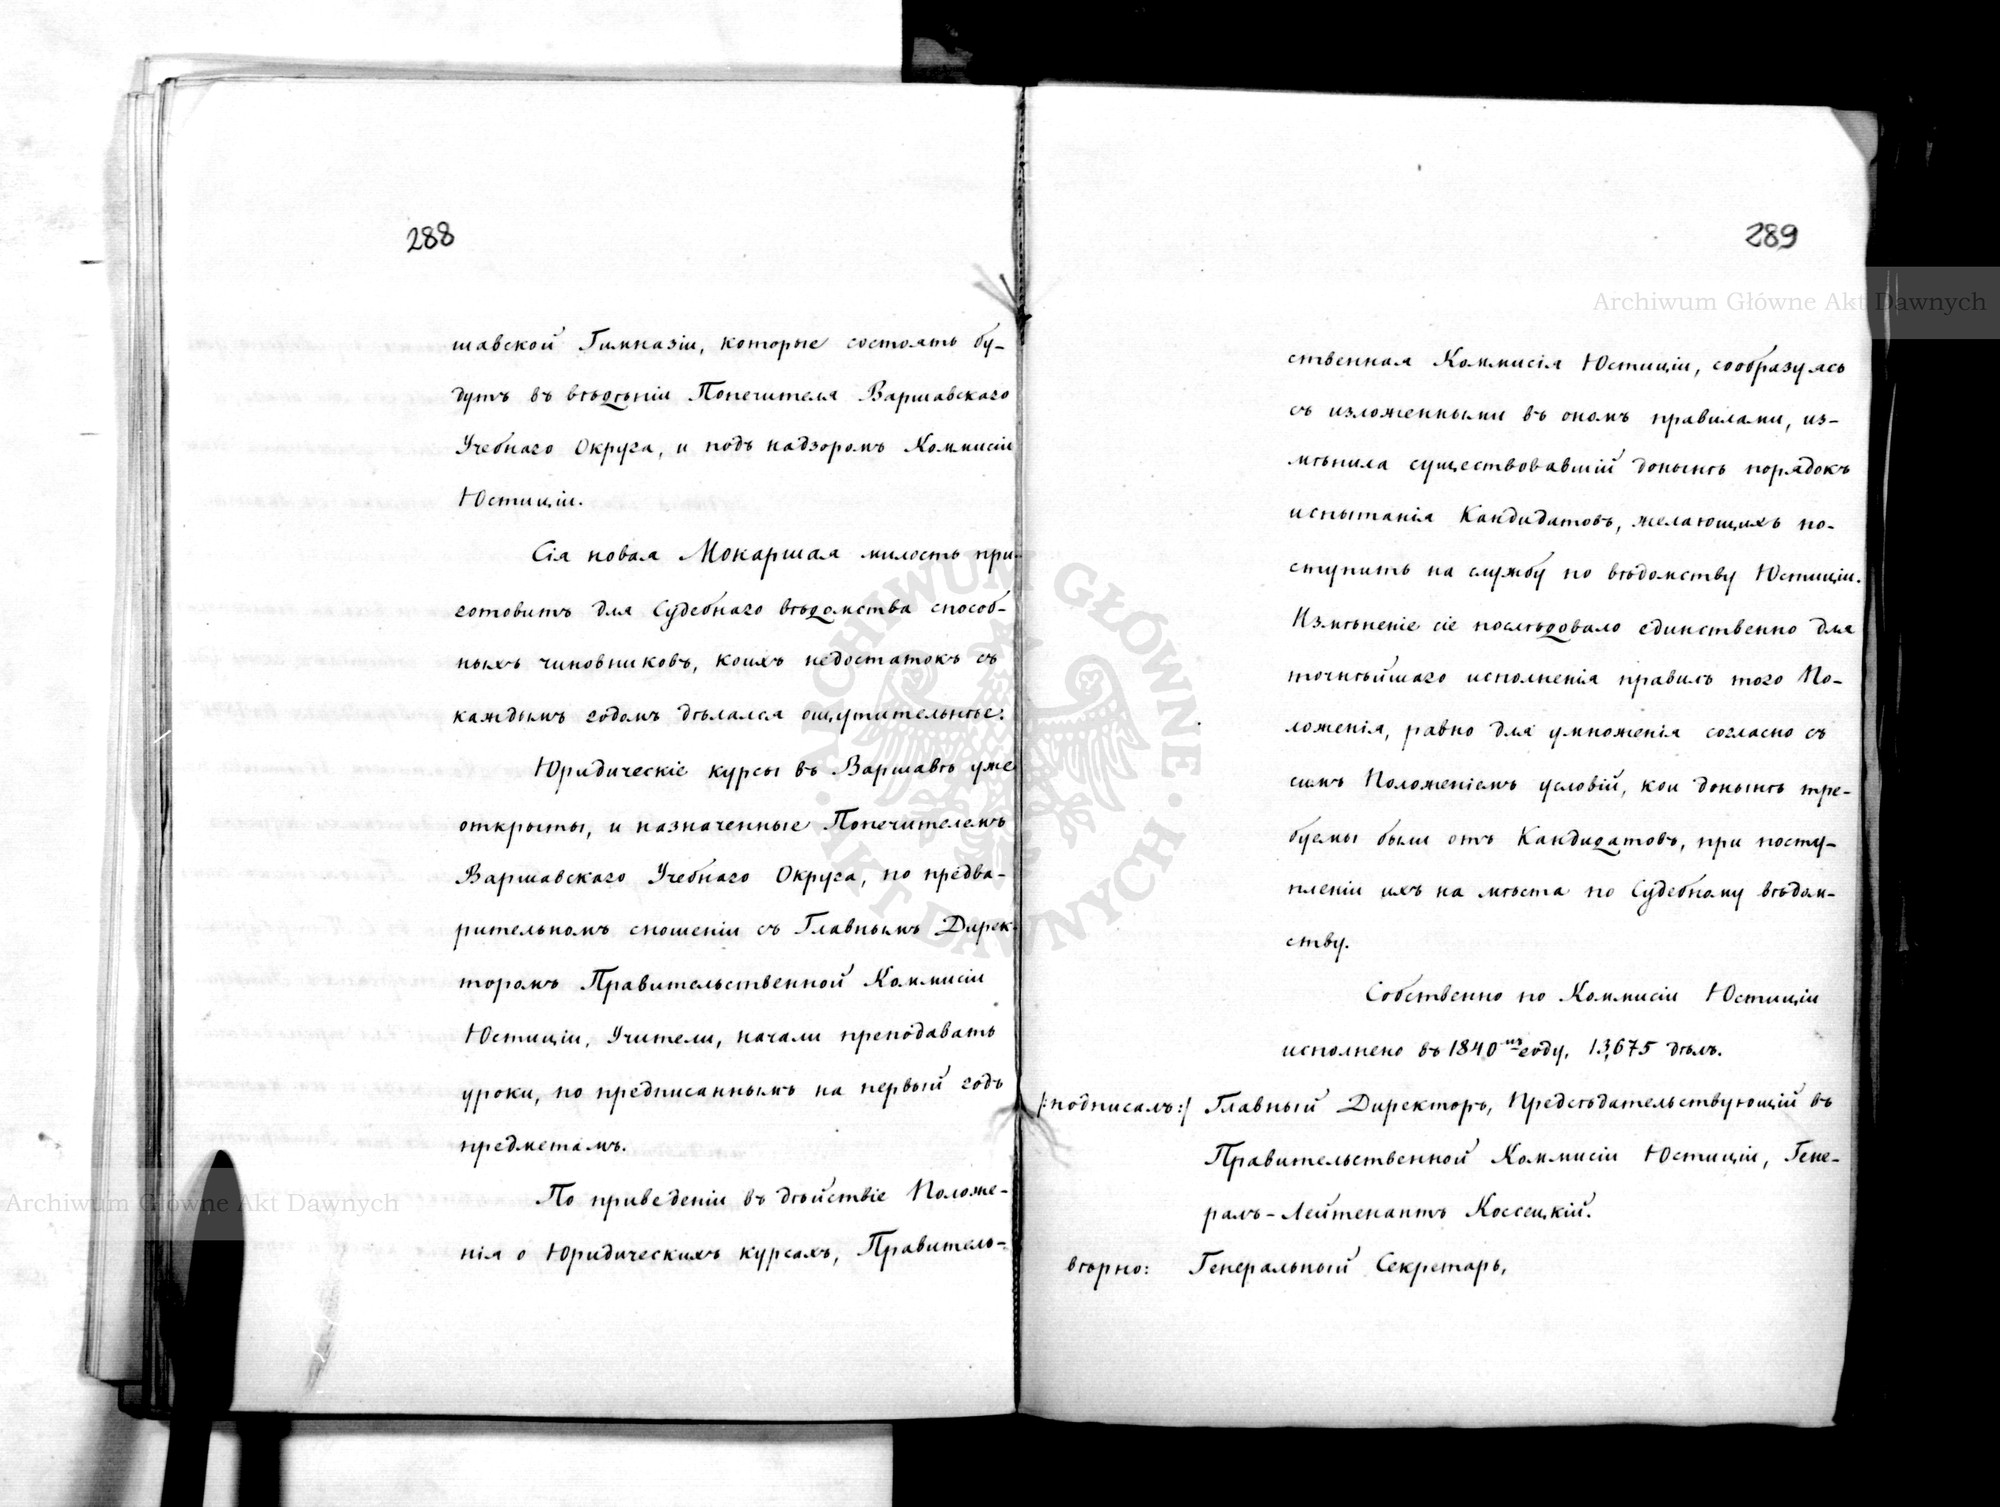 288
шавской Гимназіи, которые состоять бу-
дутъ въ вѣдѣніи Попечителя Варшавскаго
Учебнаго Округа, и подъ надзоромъ Коммисіи
Юстиціи.
Сія новая Монаршая милость при-
готовитъ для Судебнаго вѣдомства способ-
ныхъ чиновниковъ, коихъ недостатокъ съ
каждымъ годомъ дѣлался ощутительнѣе.
Юридическіе курсы въ Варшавѣ уже
открыты, и назначенные Попечителемъ
Варшавскаго Учебнаго Округа, по предва-
рительномъ сношеніи съ Главнымъ Дирек-
торомъ Правительственной Коммисіи
Юстиціи, Учители, начали преподавать
уроки, по предписаннымъ на первый годъ
предметамъ.
По приведеніи въ дѣйствіе Положе-
нія о Юридическихъ курсахъ, Правитель-
289
ственная Коммисія Юстиціи, сообразуясь
съ изложенными въ ономъ правилами, из-
мѣнила существовавшій донынѣ порядокъ
испытанія Кандидатовъ, желающихъ по-
ступить на службу по вѣдомству Юстиціи.
Измѣненіе сіе послѣдовало единственно для
точнѣйшаго исполненія правилъ того По-
ложенія, равно для умноженія согласно съ
симъ Положеніемъ условій, кои донынѣ тре-
буемы были отъ Кандидатовъ, при посту-
пленіи ихъ на мѣста по Судебному вѣдом-
ству.
Собственно по Коммисіи Юстиціи
исполнено въ 1840мъ году, 13,675 дѣлъ.
/:подписалъ:/ Главный Директоръ, Предсѣдательствующій въ
Правительственной Коммисіи Юстиціи, Гене-
ралъ-Лейтенантъ Коссецкій.
вѣрно: Генеральный Секретарь,
Archiwum Główne Akt Dawnych
Archiwum Główne Akt Dawnych
ARCHIWUM GŁÓWNE · AKT DAWNYCH ·